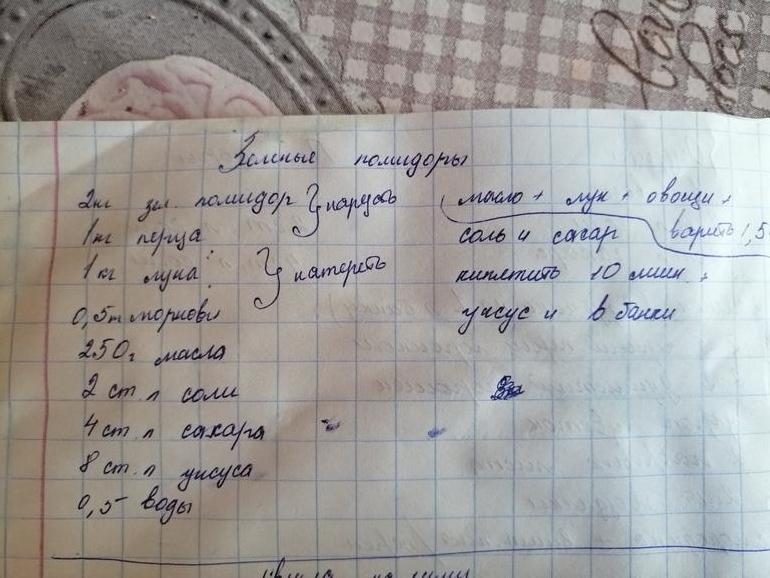 Зеленые помидоры
2 кг зел. помидор } нарезать
1 кг перца
1 кг лука } натереть
0,5 моркови
250 г масла
2 ст. л соли
4 ст. л сахара
8 ст. л уксуса
0,5 воды
масло + лук + овощи +
соль и сахар варить 1,5
кипятить 10 мин. +
уксус и в банки